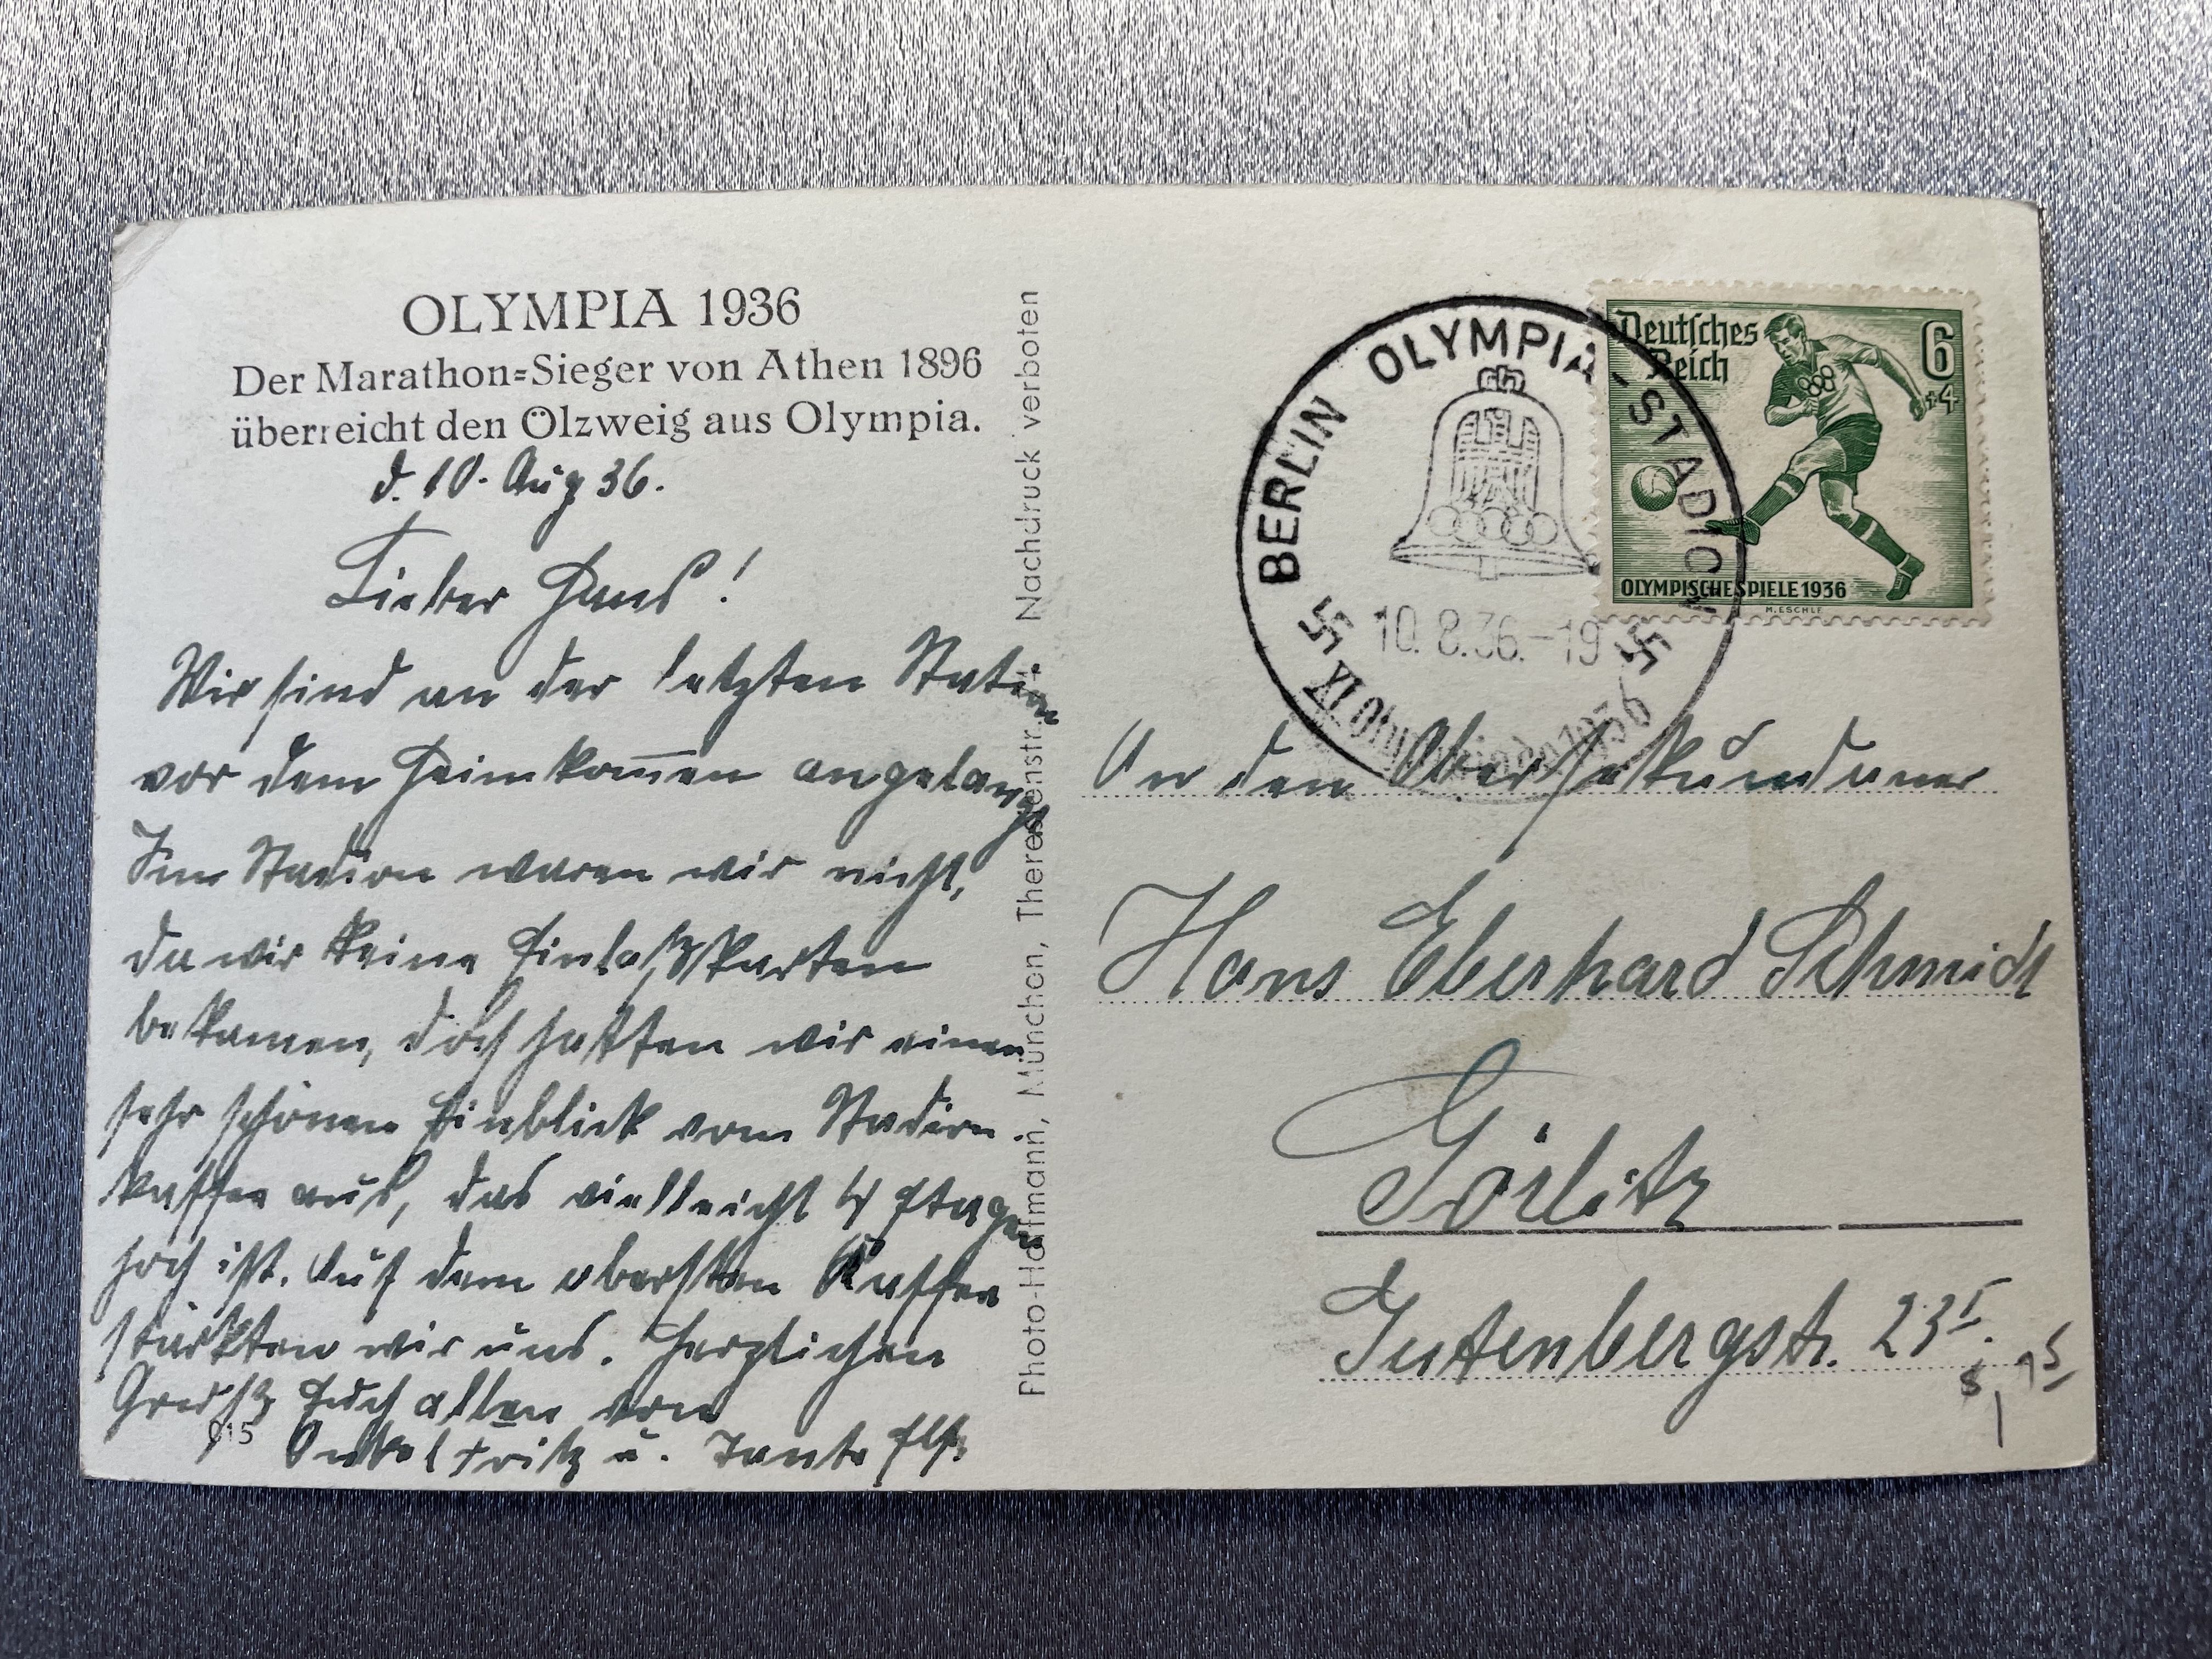 OLYMPIA 1936
Der Marathon=Sieger von Athen 1896
überreicht den Ölzweig aus Olympia.
d. 10. Aug 36.
Lieber Hans!
Wir sind an der letzten Station
vor dem Heimkom̅en angelangt
Im Stadion waren wir nicht,
da wir keine Einlaßkarten
bekamen, doch hatten wir einen
sehr schönen Einblick vom Stadion-
kaffee aus, das vielleicht 4 Etagen
hoch ist. Auf dem obersten Kaffee
stärkten wir uns. Herzlichen
Gruß Euch allen von
Onkel Fritz u. Tante
915
Photo-Hoffmann, München, Theresienstr. Nachdruck verboten
BERLIN OLYMPIA-STADION
10.8.36.-19
XI. Olympiade 1936
Deutsches
Reich
6
+4
OLYMPISCHE SPIELE 1936
M. ESCHLE
An den Obersekundaner
Hans Eberhard Schmidt
Görlitz
Gutenbergstr. 23 I.